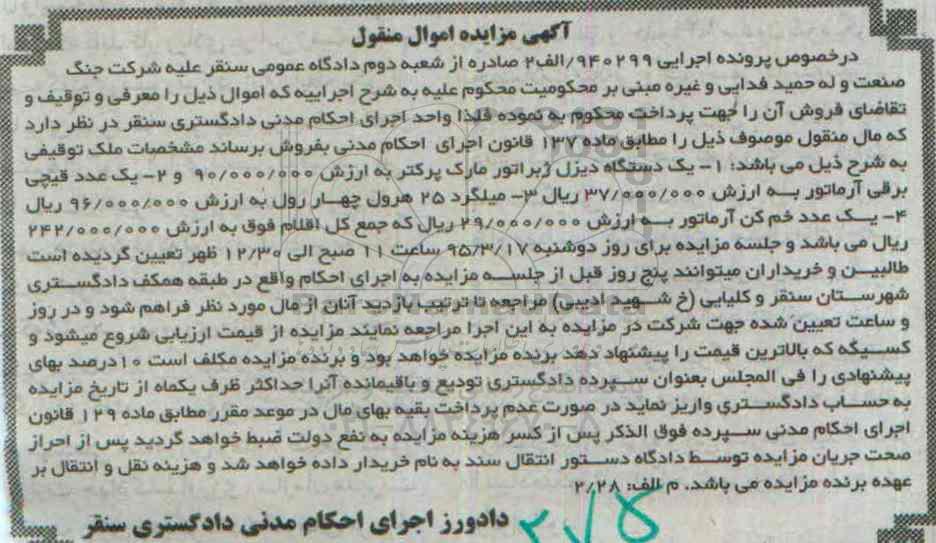 آگهی مزایده اموال منقول
درخصوص پرونده اجرایی ۹۴۰۲۹۹/الف۲ صادره از شعبه دوم دادگاه عمومی سنقر علیه شرکت جنگ
صنعت و له حمید فدایی و غیره مبنی بر محکومیت محکوم علیه به شرح اجراییه که اموال ذیل را معرفی و توقیف و
تقاضای فروش آن را جهت پرداخت محکوم به نموده فلذا واحد اجرای احکام مدنی دادگستری سنقر در نظر دارد
که مال منقول موصوف ذیل را مطابق ماده ۱۳۷ قانون اجرای احکام مدنی بفروش برساند مشخصات ملک توقیفی
به شرح ذیل می باشد: ۱- یک دستگاه دیزل ژبراتور مارک پرکتر به ارزش ۹۰/۰۰۰/۰۰۰ و ۲- یک عدد قیچی
برقی آرماتور به ارزش ۳۷/۰۰۰/۰۰۰ ریال ۳- میلگرد ۲۵ هرول چهار رول به ارزش ۹۶/۰۰۰/۰۰۰ ریال
۴- یک عدد خم کن آرماتور به ارزش ۲۹/۰۰۰/۰۰۰ ریال که جمع کل اقلام فوق به ارزش ۲۴۲/۰۰۰/۰۰۰
ریال می باشد و جلسه مزایده برای روز دوشنبه ۹۵/۳/۱۷ ساعت ۱۱ صبح الی ۱۲/۳۰ ظهر تعیین گردیده است
طالبین و خریداران میتوانند پنج روز قبل از جلسه مزایده به اجرای احکام واقع در طبقه همکف دادگستری
شهرستان سنقر و کلیایی (خ شهید ادیبی) مراجعه تا ترتیب بازدید آنان از مال مورد نظر فراهم شود و در روز
و ساعت تعیین شده جهت شرکت در مزایده به این اجرا مراجعه نمایند مزایده از قیمت ارزیابی شروع میشود و
کسیگه که بالاترین قیمت را پیشنهاد دهد برنده مزایده خواهد بود و برنده مزایده مکلف است ۱۰درصد بهای
پیشنهادی را فی المجلس بعنوان سپرده دادگستری تودیع و باقیمانده آنرا حداکثر ظرف یکماه از تاریخ مزایده
به حساب دادگستری واریز نماید در صورت عدم پرداخت بقیه بهای مال در موعد مقرر مطابق ماده ۱۲۹ قانون
اجرای احکام مدنی سپرده فوق الذکر پس از کسر هزینه مزایده به نفع دولت ضبط خواهد گردید پس از احراز
صحت جریان مزایده توسط دادگاه دستور انتقال سند به نام خریدار داده خواهد شد و هزینه نقل و انتقال بر
عهده برنده مزایده می باشد. م الف: ۲/۲۸
دادورز اجرای احکام مدنی دادگستری سنقر